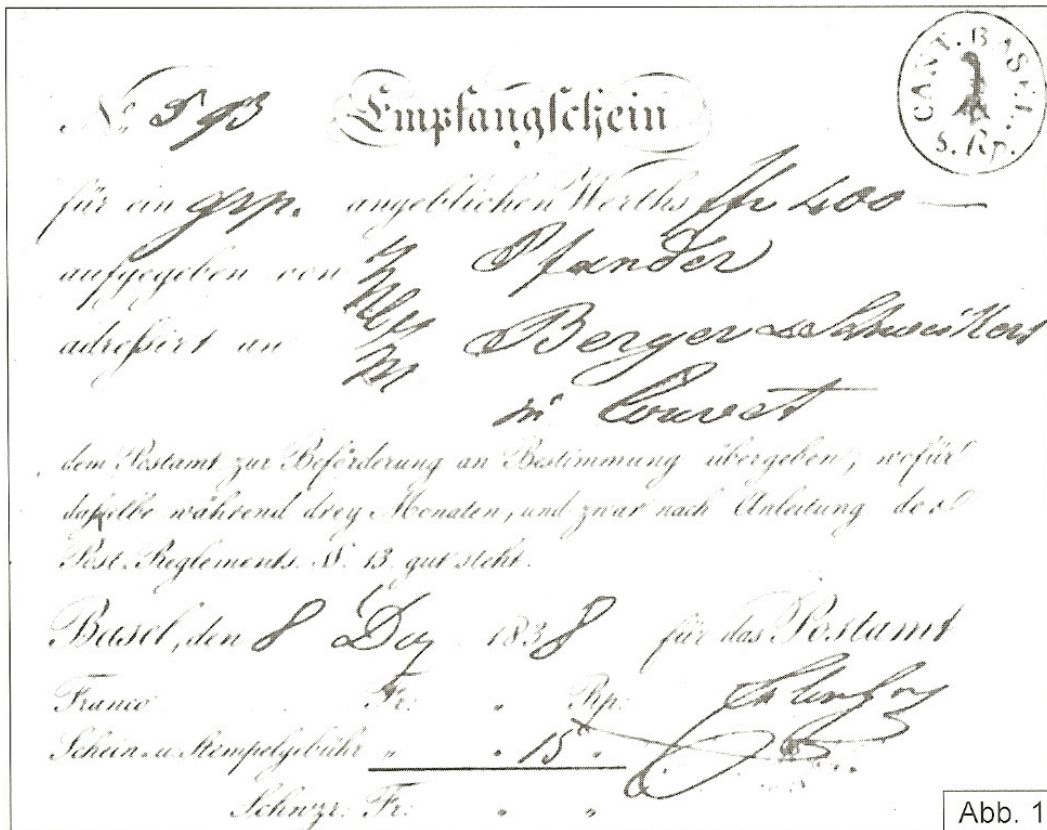 CANT. BASEL.
5. Rp.
No. 593 Empfangschein
für ein grp. angeblichen Werths fr 400 —
aufgegeben von Pfander
adreßirt an Berger &
in Couvet
dem Postamt zur Beförderung an Bestimmung übergeben, wofür
daßelbe während drey Monaten, und zwar nach Anleitung des
Post-Reglements. §. 13. gut steht.
Basel, den 8 Dez 1838 für das Postamt
Franco Fr: " Rp:
Schein- u. Stempelgebühr " " 15 "
Schwzr: Fr: " "
Abb. 1